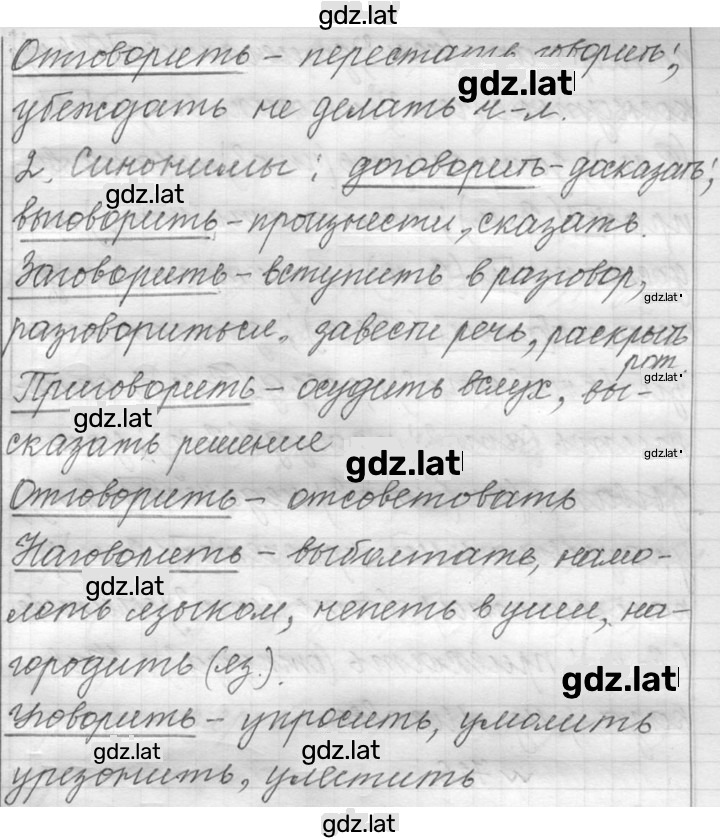 gdz.lat
Отговорить - перестать говорить;
gdz.lat
убеждать не делать ч-л.
2. Синонимы: договорить - досказать;
gdz.lat
выговорить - произнести, сказать.
Заговорить - вступить в разговор,
gdz.lat
разговориться, завести речь, раскрыть
рот.
gdz.lat
Приговорить - осудить вслух, вы-
gdz.lat
сказать решение
gdz.lat
gdz.lat
Отговорить - отсоветовать
Наговорить - выболтать, намо-
gdz.lat
лоть языком, напеть в уши, на-
городить (яз.).
gdz.lat
Уговорить - упросить, умолить
gdz.lat gdz.lat
урезонить, улестить
gdz.lat